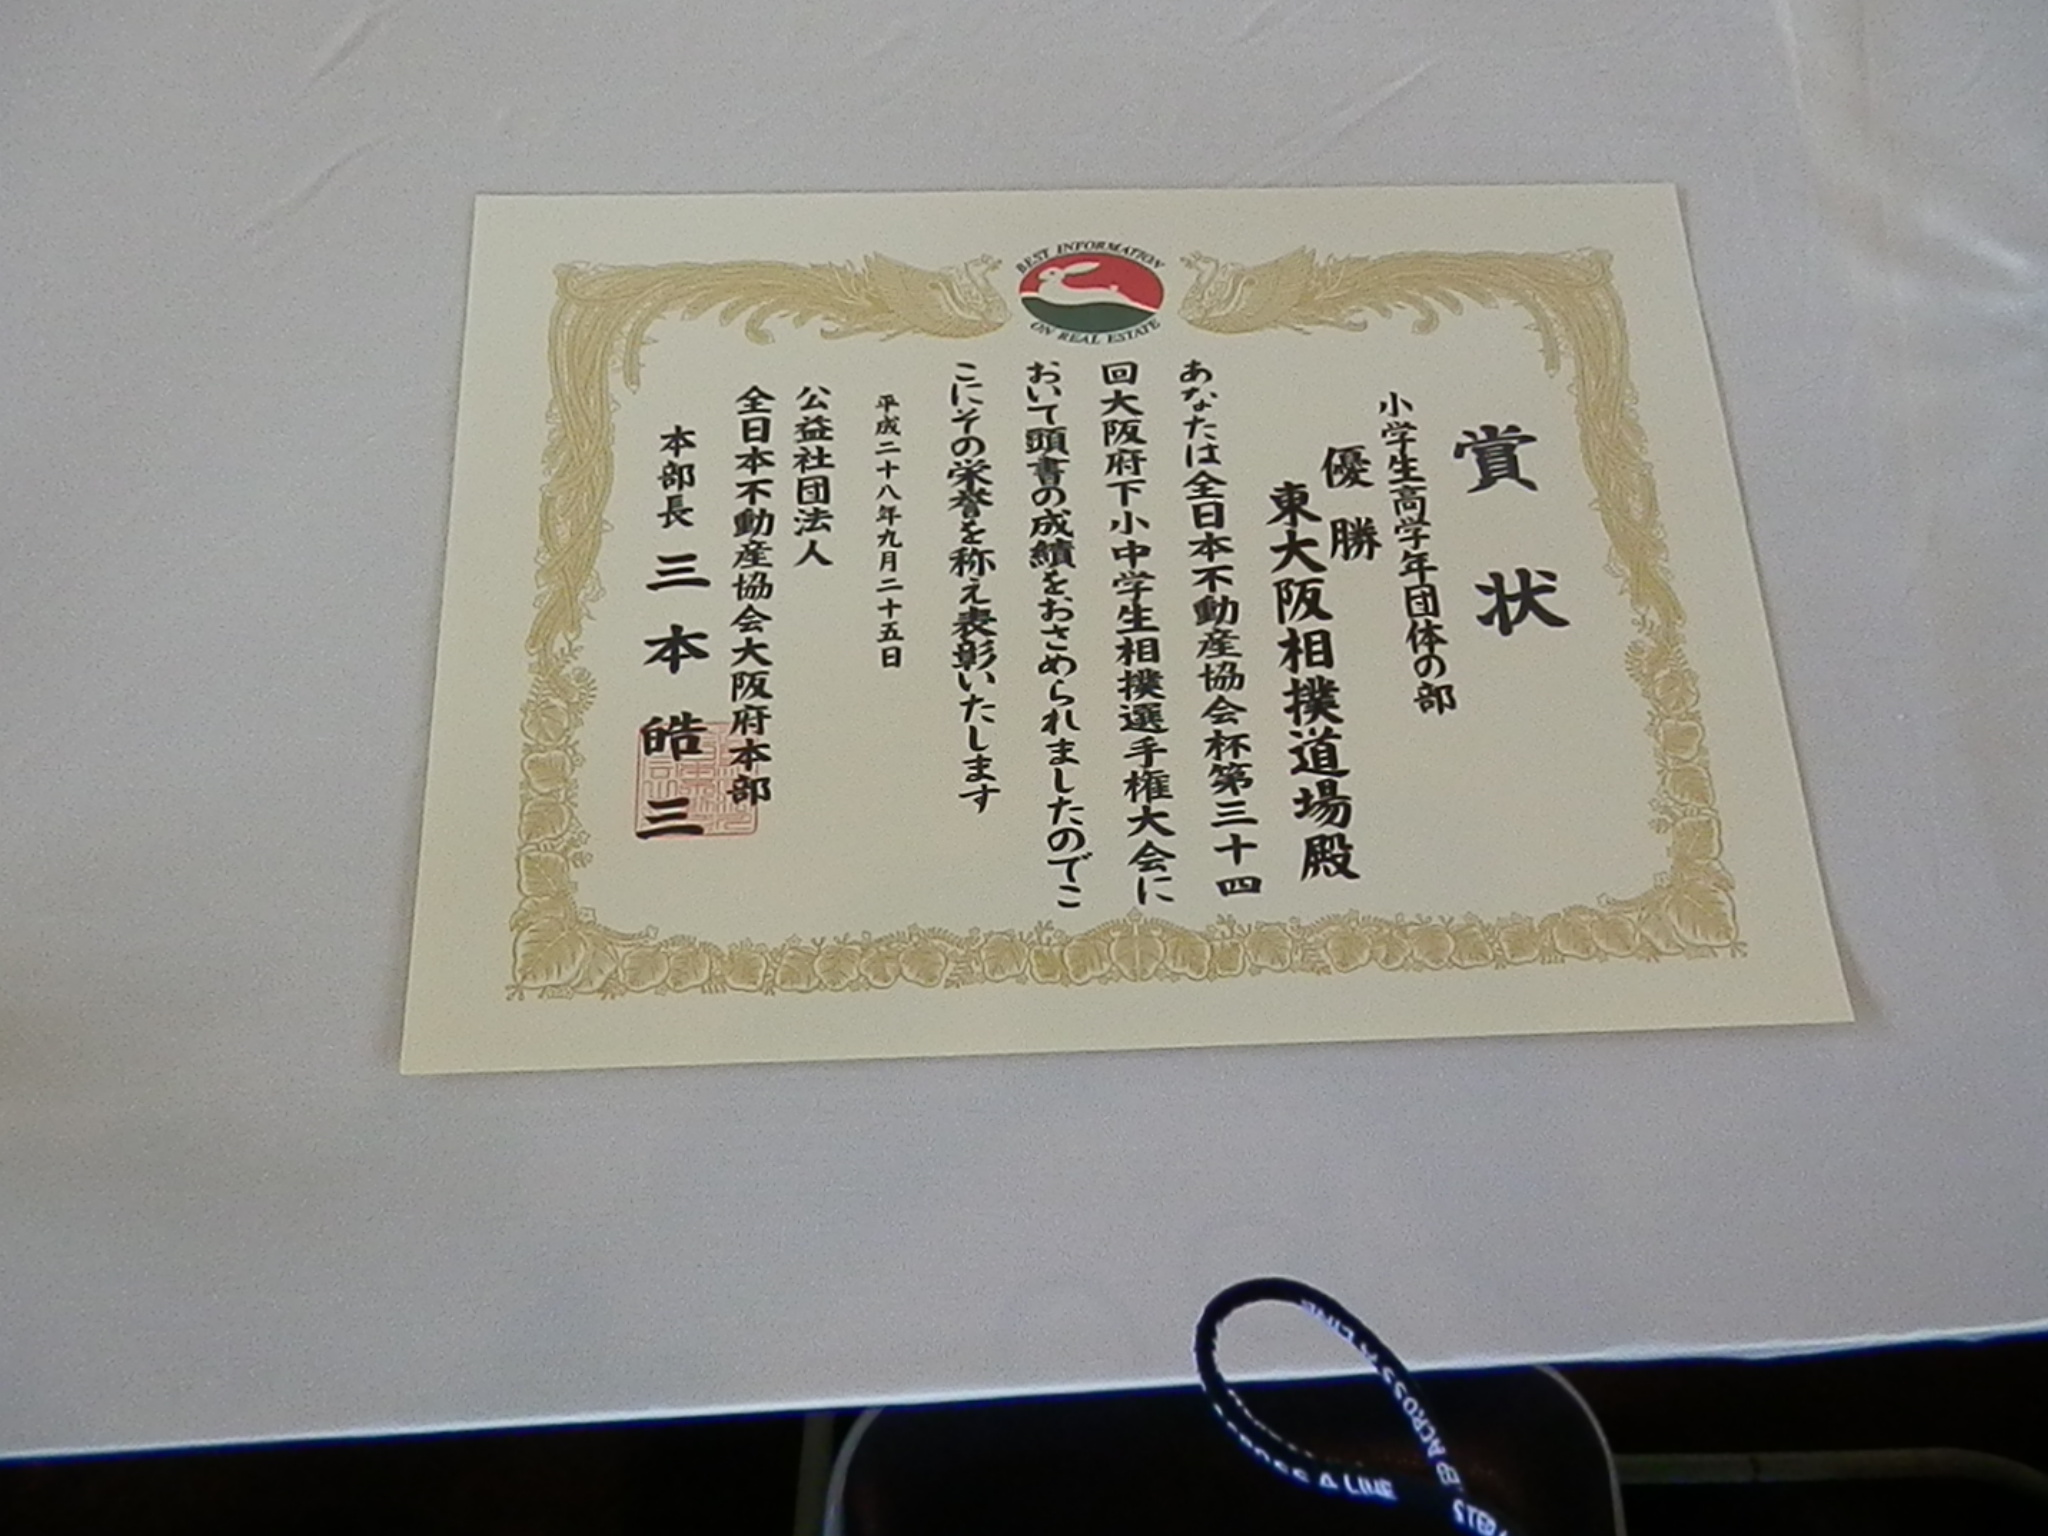 BEST INFORMATION
ON REAL ESTATE
賞状
小学生高学年団体の部
優勝
東大阪相撲道場殿
あなたは全日本不動産協会杯第三十四
回大阪府下小中学生相撲選手権大会に
おいて頭書の成績をおさめられましたのでこ
こにその栄誉を称え表彰いたします
平成二十八年九月二十五日
公益社団法人
全日本不動産協会大阪府本部
本部長 三本皓三
ACROSS A LINE